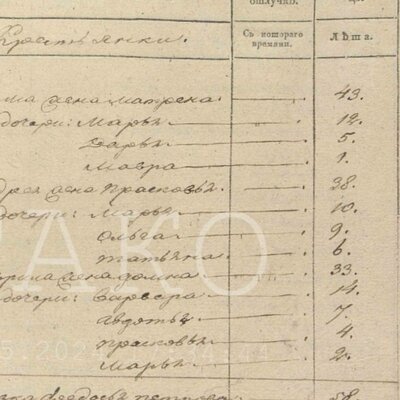 отлучкѣ.
Крестьянки.
Съ котораго времени.
Лѣта.
жена Матрена. 43.
дочери: Марья 12.
Дарья 5.
Мавра 1.
жена Прасковья. 38.
дочери: Марья 10.
Ольга 9.
Татьяна 6.
жена Домна. 33.
дочери: Варвара 14.
Авдотья 7.
Прасковья 4.
Марья 2.
ГАКО
58.